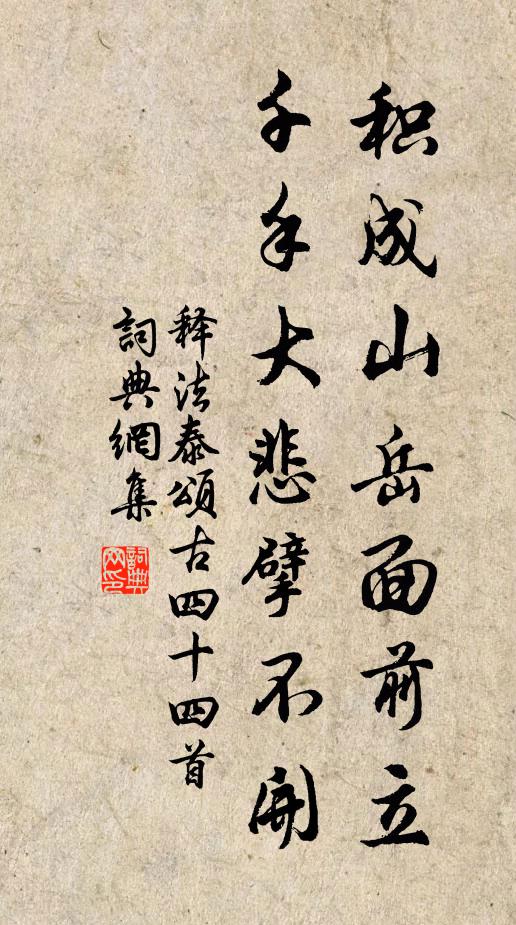 积成山岳面前立
千手大悲擘不开
释法泰颂古四十四首
詞典網集
詞典网印